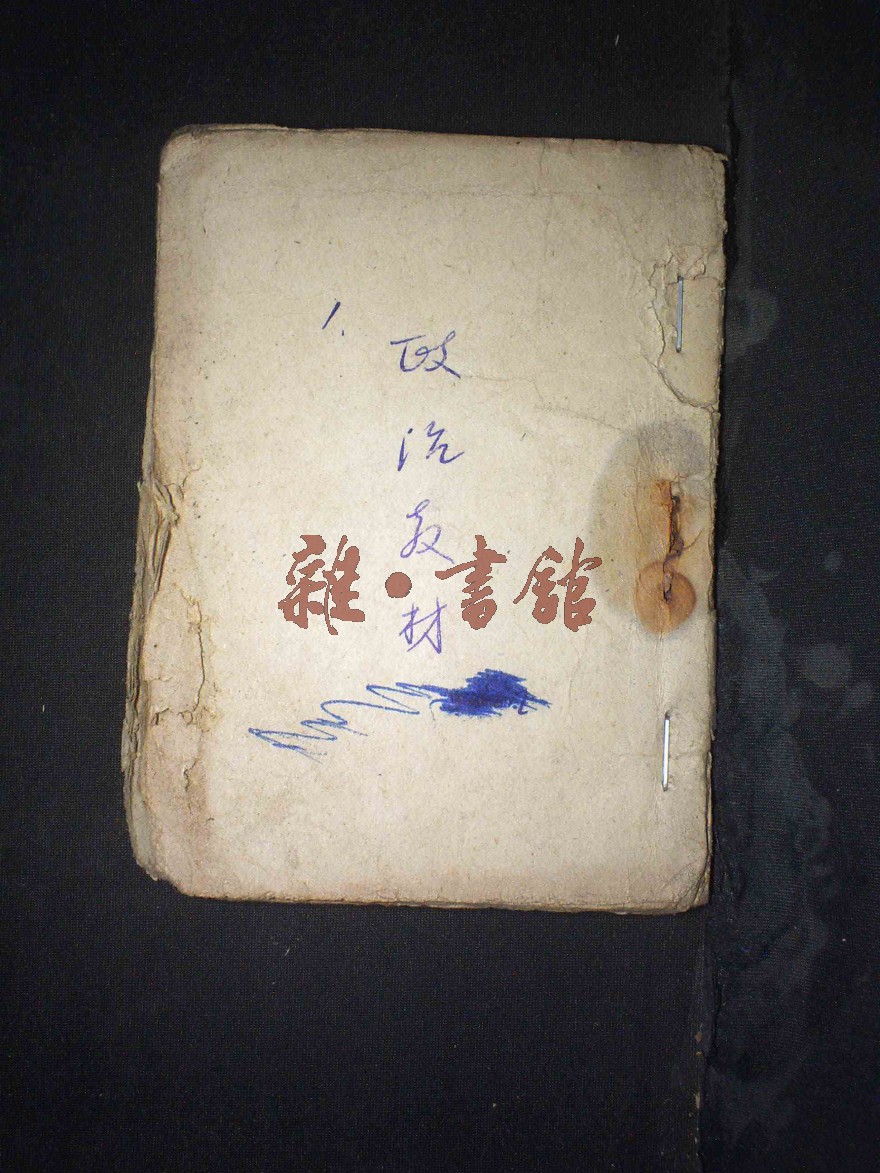 1.
政
治
教
材
雜·書館